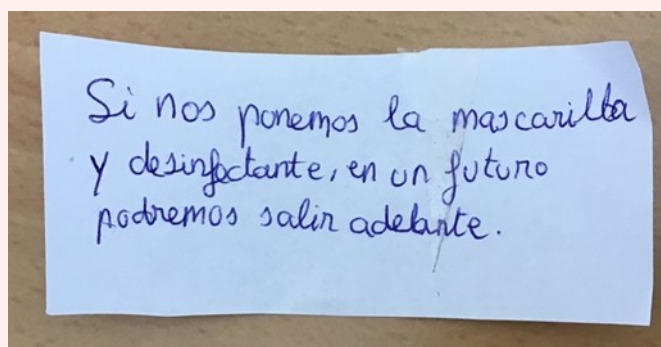 Si nos ponemos la mascarilla
y desinfectante, en un futuro
podremos salir adelante.